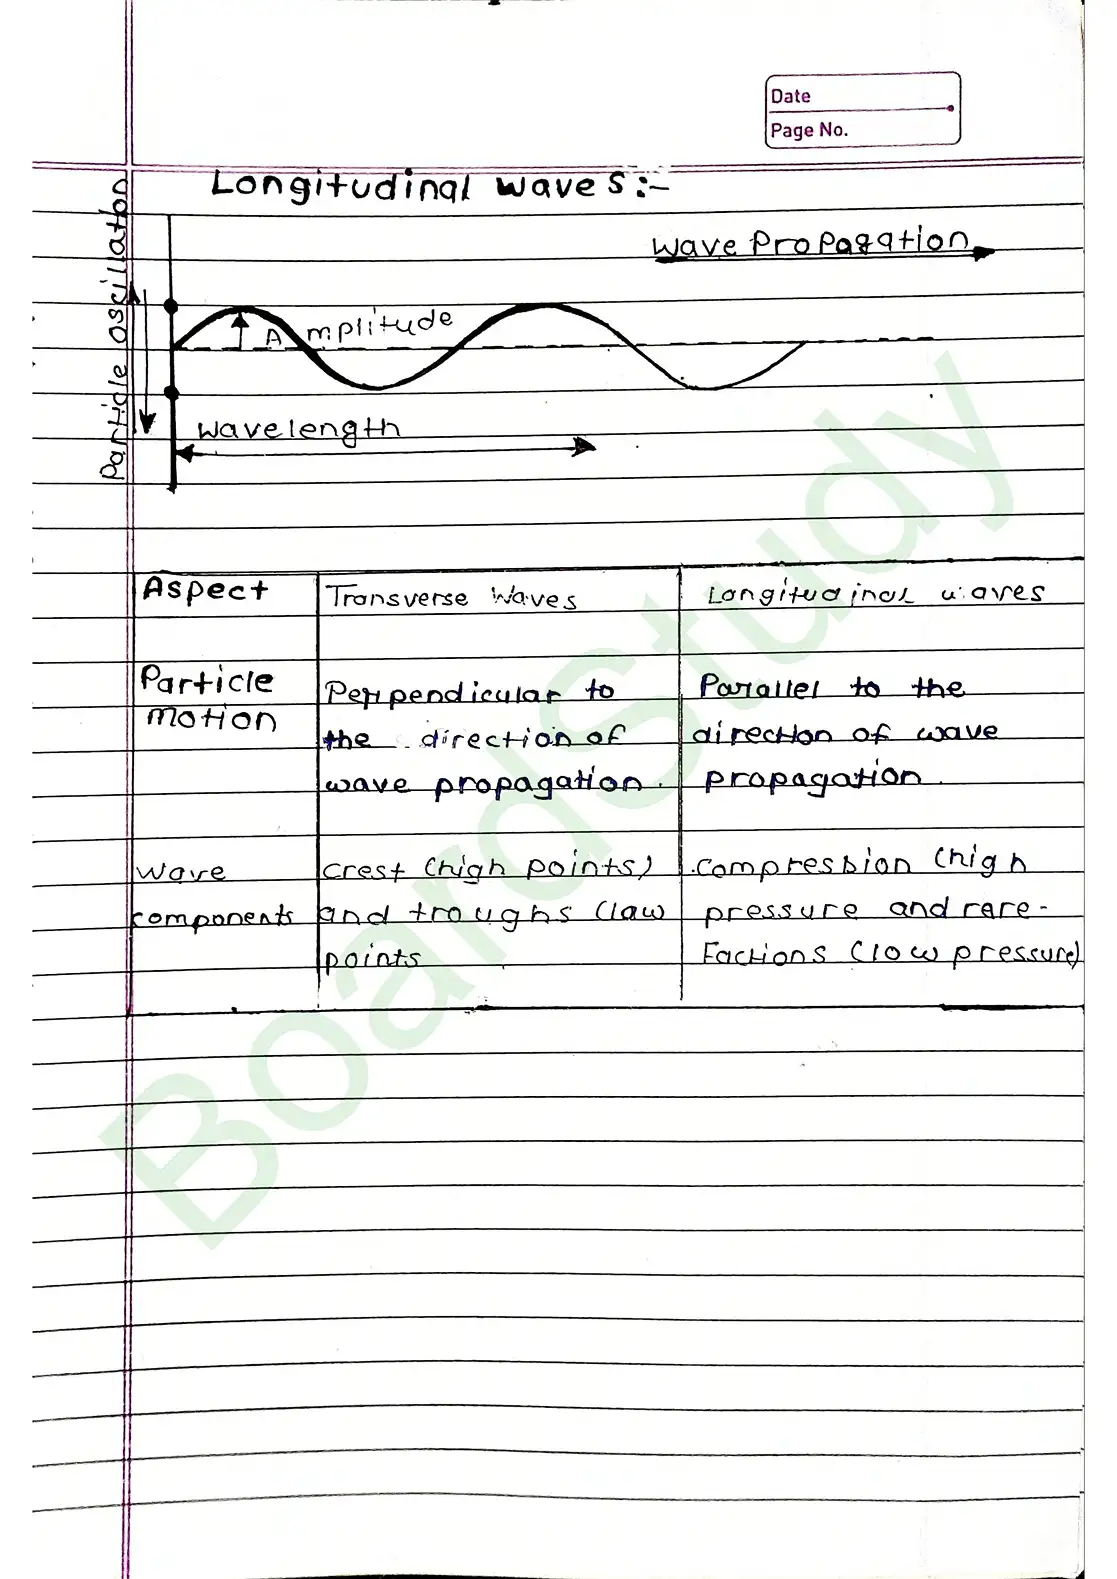 Date
Page No.
Longitudinal waves:-
Particle oscillation
wave Propagation
Amplitude
wavelength
Aspect
Transverse Waves
Longitudinal waves
Particle
motion
Perpendicular to
the direction of
wave propagation.
Parallel to the
direction of wave
propagation.
wave
components
crest (high points)
and troughs (law
points
compression (high
pressure and rare-
Factions (low pressure)
BoardStudy